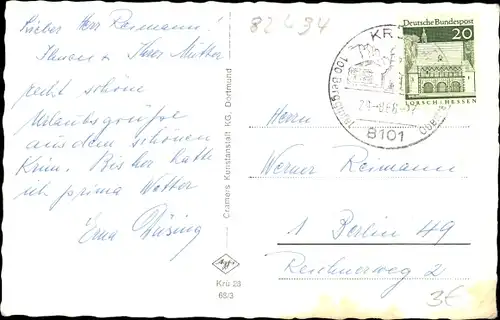 Lieber Herr Reimann!
Ihnen & Ihrer Mutter
recht schöne
Urlaubsgrüße
aus dem schönen
Krün. Bis her hatte
ich prima Wetter
Erna Düsing
82 L 34
Cramers Kunstanstalt KG, Dortmund
Krü 28
68/3
Deutsche Bundespost
20
LORSCH · HESSEN
KRÜ
8101
Herrn
Werner Reimann
1 Berlin 49
Reichnerweg 2
3€